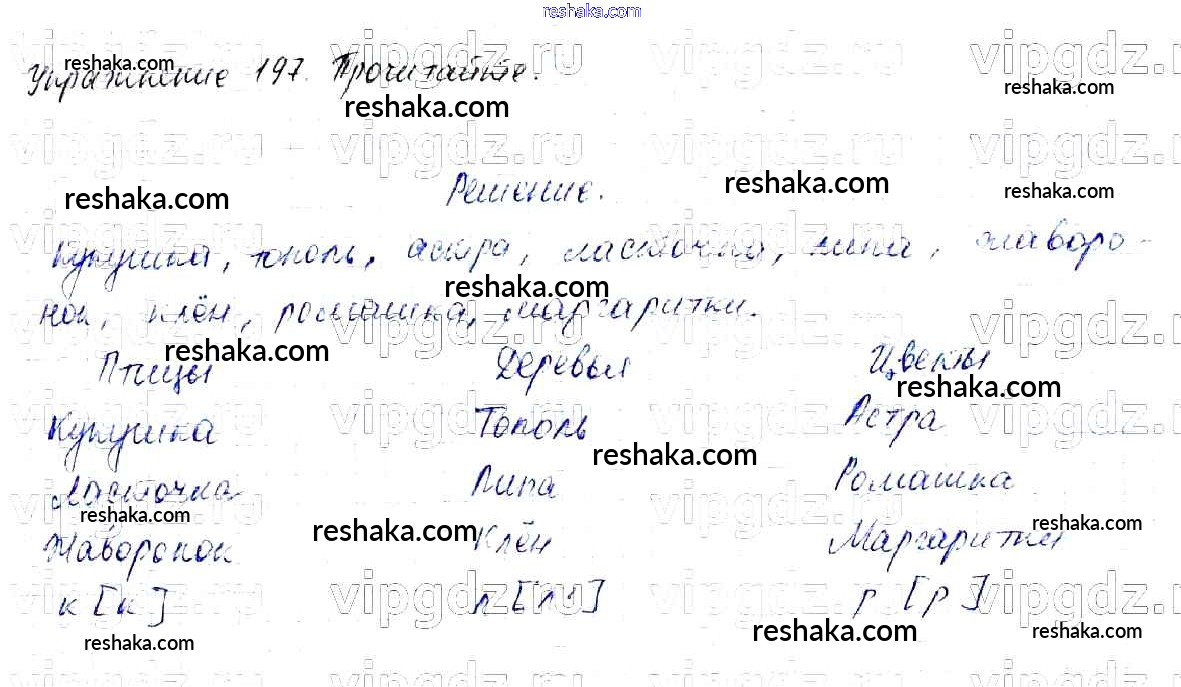 reshaka.com
Упражнение 197. Прочитайте.
Решение.
Кукушка, тополь, астра, ласточка, липа, жаворо-
нок, клён, ромашка, маргаритки.
Птицы Деревья Цветы
Кукушка Тополь Астра
Ласточка Липа Ромашка
Жаворонок Клён Маргаритки
к [к] л [л'] р [р]